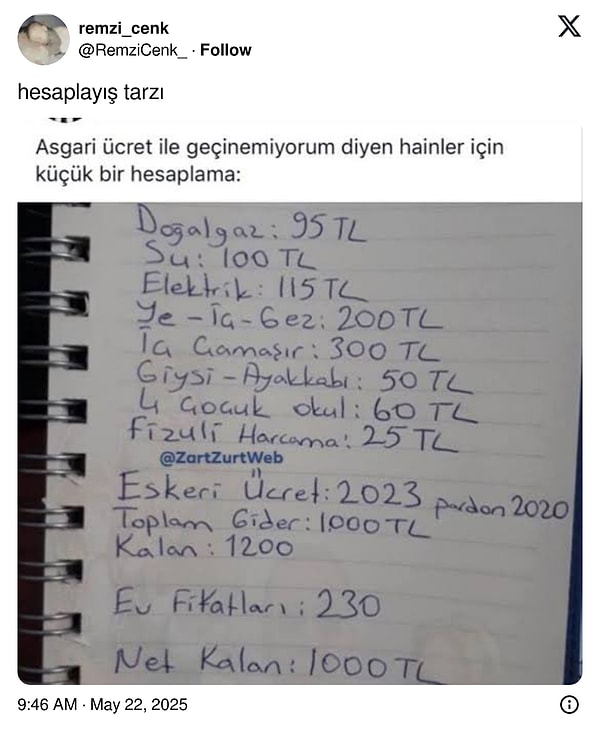 remzi_cenk
@RemziCenk_ · Follow
hesaplayış tarzı
Asgari ücret ile geçinemiyorum diyen hainler için
küçük bir hesaplama:
Doğalgaz: 95 TL
Su: 100 TL
Elektrik: 115 TL
Ye-İç-Gez: 200 TL
İç Çamaşır: 300 TL
Giysi-Ayakkabı: 50 TL
4 Çocuk okul: 60 TL
Fizuli Harcama: 25 TL
@ZartZurtWeb
Eskeri Ücret: 2023 pardon 2020
Toplam Gider: 1000 TL
Kalan: 1200
Ev Fitatları: 230
Net Kalan: 1000 TL
9:46 AM · May 22, 2025